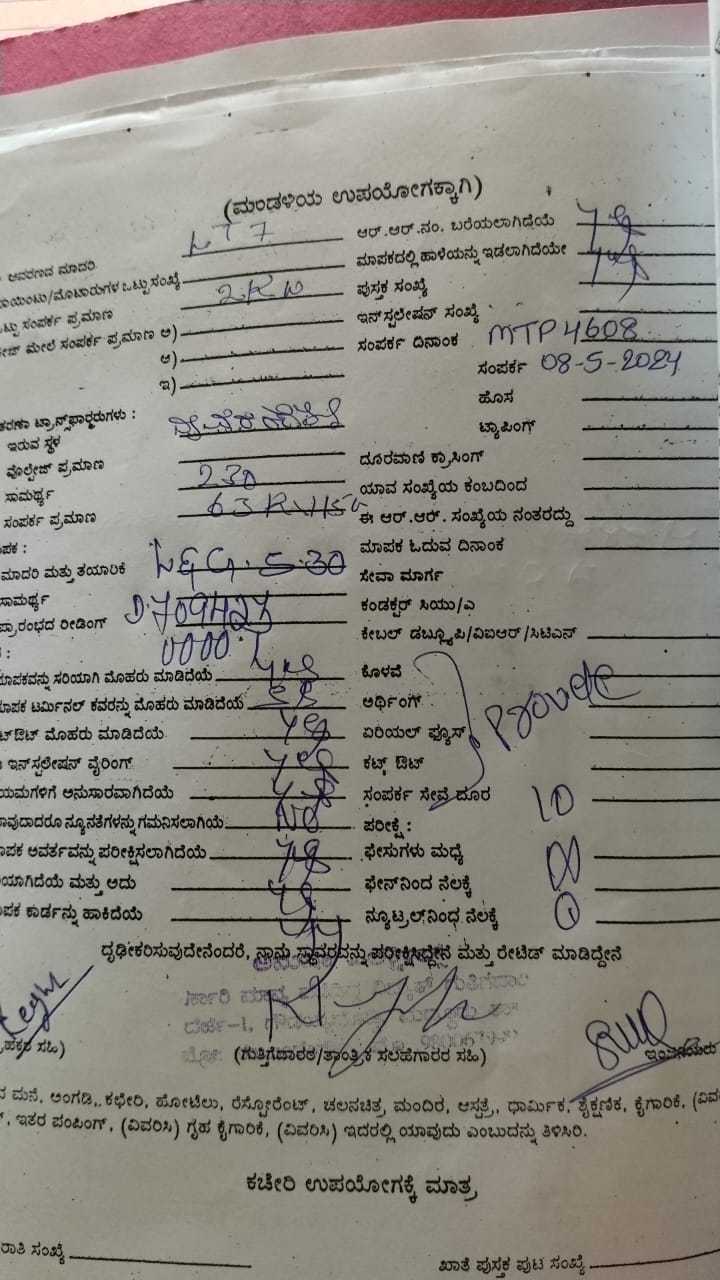 (ಮಂಡಳಿಯ ಉಪಯೋಗಕ್ಕಾಗಿ)
ಆವರಣದ ಮಾದರಿ LT7 ಆರ್.ಆರ್.ನಂ. ಬರೆಯಲಾಗಿದೆಯೆ yes
ಾಯಿಂಟು/ಮೊಟಾರುಗಳ ಒಟ್ಟುಸಂಖ್ಯೆ ಮಾಪಕದಲ್ಲಿ ಹಾಳೆಯನ್ನು ಇಡಲಾಗಿದೆಯೇ yes
ಟ್ಟು ಸಂಪರ್ಕ ಪ್ರಮಾಣ 2KW ಪುಸ್ತಕ ಸಂಖ್ಯೆ
ೇಜ್ ಮೇಲೆ ಸಂಪರ್ಕ ಪ್ರಮಾಣ ಅ) ಇನ್‌ಸ್ಟಲೇಷನ್ ಸಂಖ್ಯೆ
ಆ) ಸಂಪರ್ಕ ದಿನಾಂಕ MTP4608
ಇ) ಸಂಪರ್ಕ 08-5-2024
ಹೊಸ
ತರಣಾ ಟ್ರಾನ್ಸ್‌ಫಾರ್ಮರುಗಳು : ಟ್ಯಾಪಿಂಗ್
ಇರುವ ಸ್ಥಳ ದೂರವಾಣಿ ಕ್ರಾಸಿಂಗ್
ವೊಲ್ಟೇಜ್ ಪ್ರಮಾಣ 230 ಯಾವ ಸಂಖ್ಯೆಯ ಕಂಬದಿಂದ
ಸಾಮರ್ಥ್ಯ 63 ಈ ಆರ್.ಆರ್. ಸಂಖ್ಯೆಯ ನಂತರದ್ದು
ಸಂಪರ್ಕ ಪ್ರಮಾಣ ಮಾಪಕ ಓದುವ ದಿನಾಂಕ
ಪಕ :
ಮಾದರಿ ಮತ್ತು ತಯಾರಿಕೆ L&G. 5-30 ಸೇವಾ ಮಾರ್ಗ
ಸಾಮರ್ಥ್ಯ ಕಂಡಕ್ಟರ್ ಸಿಯು/ಎ
ಪ್ರಾರಂಭದ ರೀಡಿಂಗ್ ಕೇಬಲ್ ಡಬ್ಲ್ಯೂಪಿ/ವಿಐಆರ್/ಸಿಟಿಎನ್
ಾಪಕವನ್ನು ಸರಿಯಾಗಿ ಮೊಹರು ಮಾಡಿದೆಯೆ yes ಕೊಳವೆ
ಾಪಕ ಟರ್ಮಿನಲ್ ಕವರನ್ನು ಮೊಹರು ಮಾಡಿದೆಯೆ yes ಅರ್ಥಿಂಗ್
ಟ್‌ಔಟ್ ಮೊಹರು ಮಾಡಿದೆಯೆ yes ಏರಿಯಲ್ ಫ್ಯೂಸ್
ಇನ್‌ಸ್ಟಲೇಷನ್ ವೈರಿಂಗ್ yes ಕಟ್ಟ್ ಔಟ್
ಯಮಗಳಿಗೆ ಅನುಸಾರವಾಗಿದೆಯೆ yes ಸಂಪರ್ಕ ಸೇವೆ ದೂರ 10
ಾವುದಾದರೂ ನ್ಯೂನತೆಗಳನ್ನು ಗಮನಿಸಲಾಗಿಯೆ No ಪರೀಕ್ಷೆ :
ಾಪಕ ಅವರ್ತವನ್ನು ಪರೀಕ್ಷಿಸಲಾಗಿದೆಯೆ yes ಫೇಸುಗಳು ಮಧ್ಯೆ
ಿಯಾಗಿದೆಯೆ ಮತ್ತು ಅದು yes ಫೇಸ್‌ನಿಂದ ನೆಲಕ್ಕೆ
ಾಪಕ ಕಾರ್ಡನ್ನು ಹಾಕಿದೆಯೆ ನ್ಯೂಟ್ರಲ್‌ನಿಂಧ ನೆಲಕ್ಕೆ
ದೃಢೀಕರಿಸುವುದೇನೆಂದರೆ, ನ್ನಾನು ಸ್ಥಾವರವನ್ನು ಪರೀಕ್ಷಿಸಿದ್ದೇನೆ ಮತ್ತು ರೇಟಿಡ್ ಮಾಡಿದ್ದೇನೆ
ಾಹಕರ ಸಹಿ) (ಗುತ್ತಿಗೆದಾರರ/ತಾಂತ್ರಿಕ ಸಲಹೆಗಾರರ ಸಹಿ) ಇಂಜಿನಿಯರು
ಮನೆ, ಅಂಗಡಿ, ಕಛೇರಿ, ಹೋಟಿಲು, ರೆಸ್ಟೋರೆಂಟ್, ಚಲನಚಿತ್ರ ಮಂದಿರ, ಆಸ್ಪತ್ರೆ, ಧಾರ್ಮಿಕ, ಶೈಕ್ಷಣಿಕ, ಕೈಗಾರಿಕೆ, (ವಿವ
ಇತರ ಪಂಪಿಂಗ್, (ವಿವರಿಸಿ) ಗೃಹ ಕೈಗಾರಿಕೆ, (ವಿವರಿಸಿ) ಇದರಲ್ಲಿ ಯಾವುದು ಎಂಬುದನ್ನು ತಿಳಿಸಿರಿ.
ಕಚೇರಿ ಉಪಯೋಗಕ್ಕೆ ಮಾತ್ರ
ರಾತಿ ಸಂಖ್ಯೆ ಖಾತೆ ಪುಸ್ತಕ ಪುಟ ಸಂಖ್ಯೆ